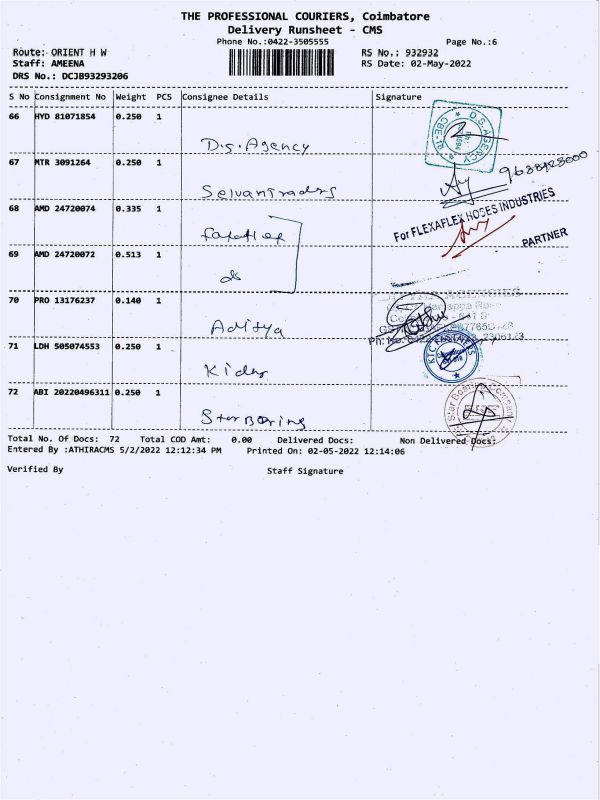 THE PROFESSIONAL COURIERS, Coimbatore
Delivery Runsheet - CMS
Phone No.:0422-3505555
Page No.:6
Route: ORIENT H W
RS No.: 932932
Staff: AMEENA
RS Date: 02-May-2022
DRS No.: DCJB93293206
S No Consignment No Weight PCS Consignee Details Signature
66 HYD 81071854 0.250 1
D.S. Agency
D.S. AGENCY
CBE-11
67 MTR 3091264 0.250 1
Selvantraders
68 AMD 24720074 0.335 1
For FLEXAFLEX HOSES INDUSTRIES
PARTNER
69 AMD 24720072 0.513 1
do
70 PRO 13176237 0.140 1
Aditya
71 LDH 505074553 0.250 1
Kider
72 ABI 20220496311 0.250 1
Star Boring
Star Boring Company
Total No. Of Docs: 72 Total COD Amt: 0.00 Delivered Docs: Non Delivered Docs:
Entered By :ATHIRACMS 5/2/2022 12:12:34 PM Printed On: 02-05-2022 12:14:06
Verified By Staff Signature